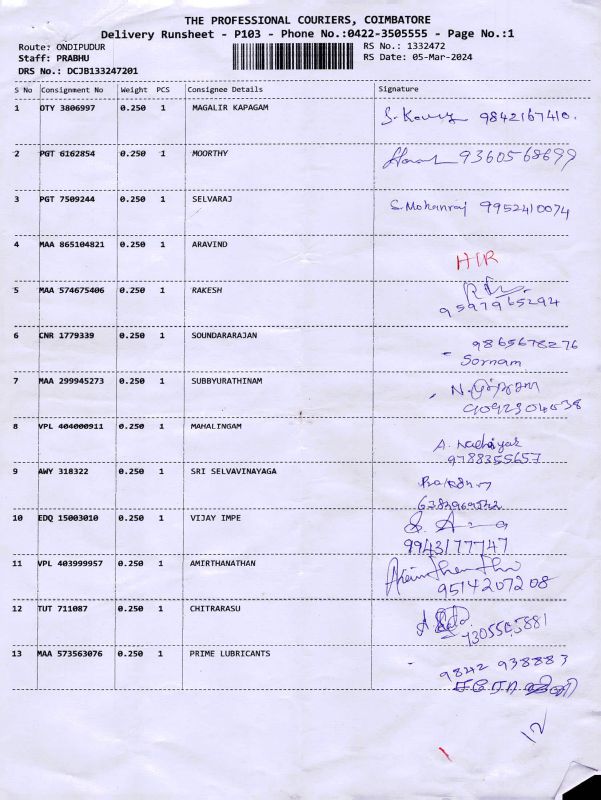 THE PROFESSIONAL COURIERS, COIMBATORE
Delivery Runsheet - P103 - Phone No.:0422-3505555 - Page No.:1
Route: ONDIPUDUR
RS No.: 1332472
Staff: PRABHU
RS Date: 05-Mar-2024
DRS No.: DCJB133247201
S No Consignment No Weight PCS Consignee Details Signature
1 OTY 3806997 0.250 1 MAGALIR KAPAGAM
9842167410.
2 PGT 6162854 0.250 1 MOORTHY
9360568699
3 PGT 7509244 0.250 1 SELVARAJ
S.Mohanraj 9952410074
4 MAA 865104821 0.250 1 ARAVIND
HIR
5 MAA 574675406 0.250 1 RAKESH
9597965294
6 CNR 1779339 0.250 1 SOUNDARARAJAN
9865678276
Sornam
7 MAA 299945273 0.250 1 SUBBYURATHINAM
9092304038
8 VPL 404000911 0.250 1 MAHALINGAM
A. Nachiyar
9788355657
9 AWY 318322 0.250 1 SRI SELVAVINAYAGA
6382969542
10 EDQ 15003010 0.250 1 VIJAY IMPE
9943177747
11 VPL 403999957 0.250 1 AMIRTHANATHAN
9514207208
12 TUT 711087 0.250 1 CHITRARASU
13 MAA 573563076 0.250 1 PRIME LUBRICANTS
9842 938883
12